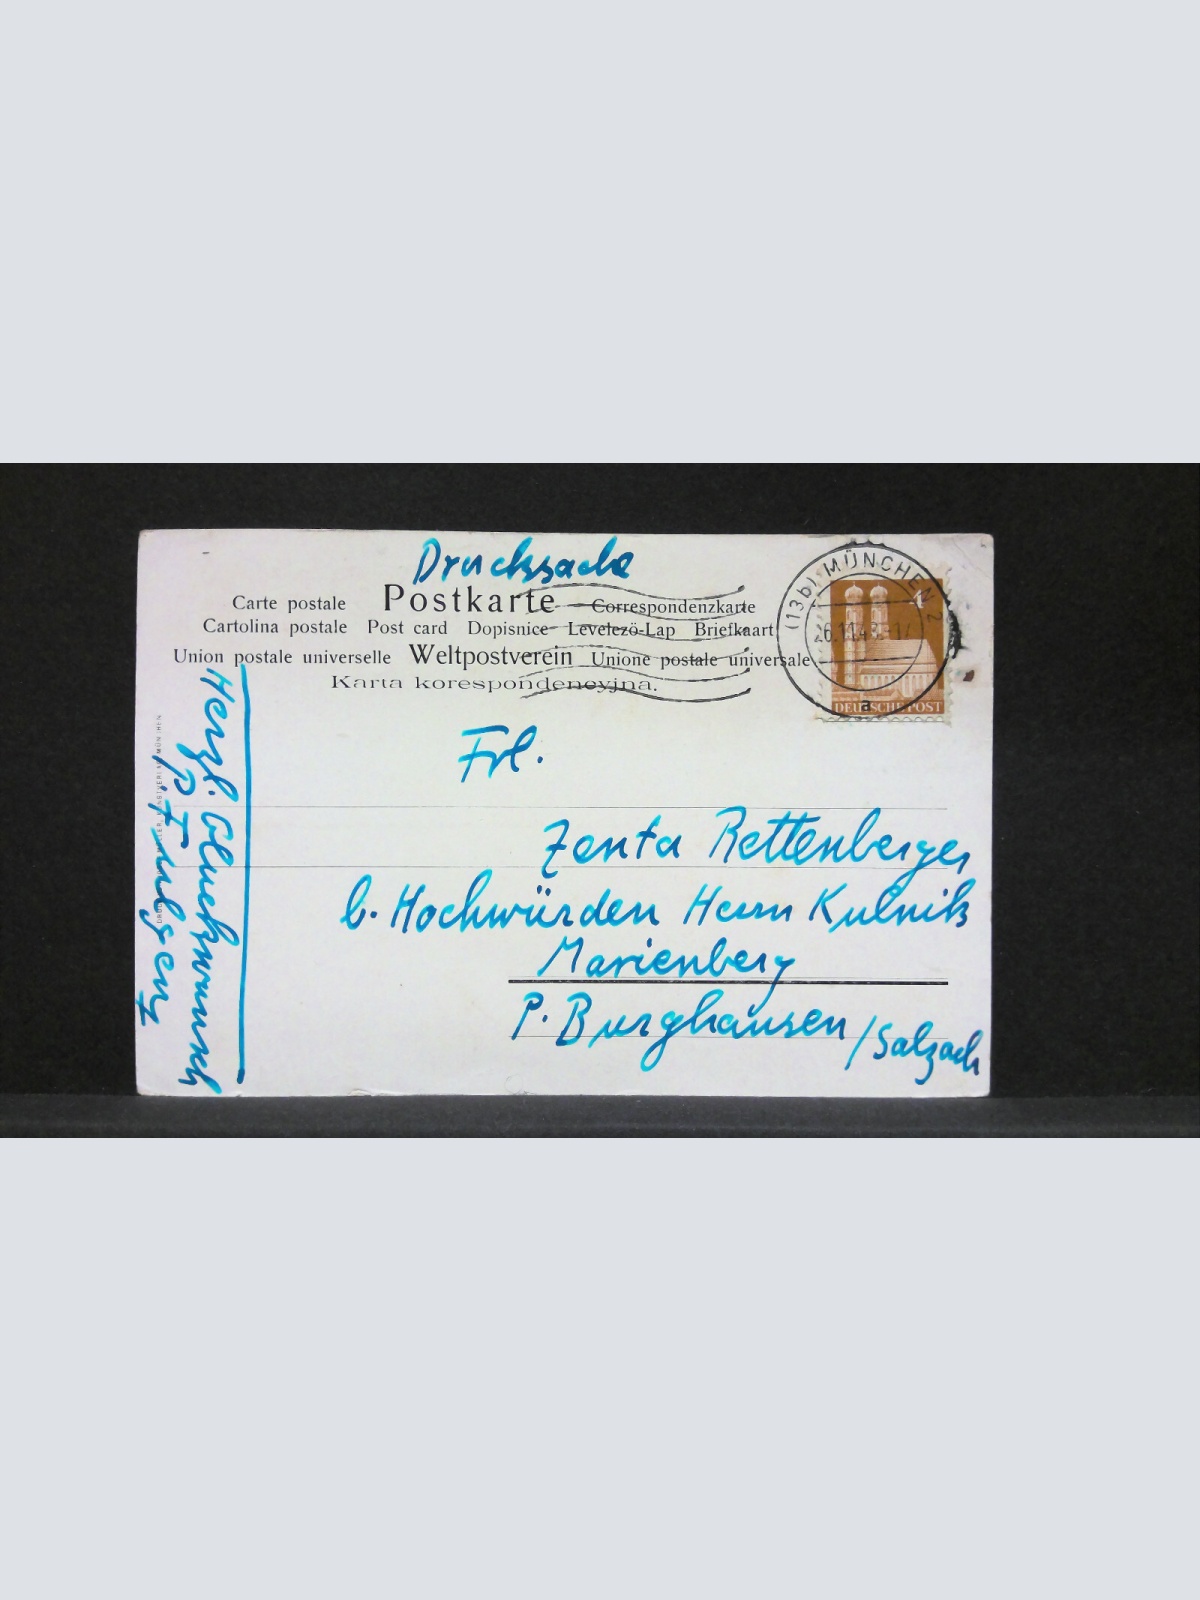 Drucksache
Carte postale Postkarte Correspondenzkarte
Cartolina postale Post card Dopisnice Levelezö-Lap Briefkaart
Union postale universelle Weltpostverein Unione postale universale
Karta korespondencyjna.
(13b) MÜNCHEN 2
a
DEUTSCHE POST
Frl.
Zenta Rettenberger
b. Hochwürden Herrn Kulnik
Marienberg
P. Burghausen /Salzach
Herzl. Glückwunsch